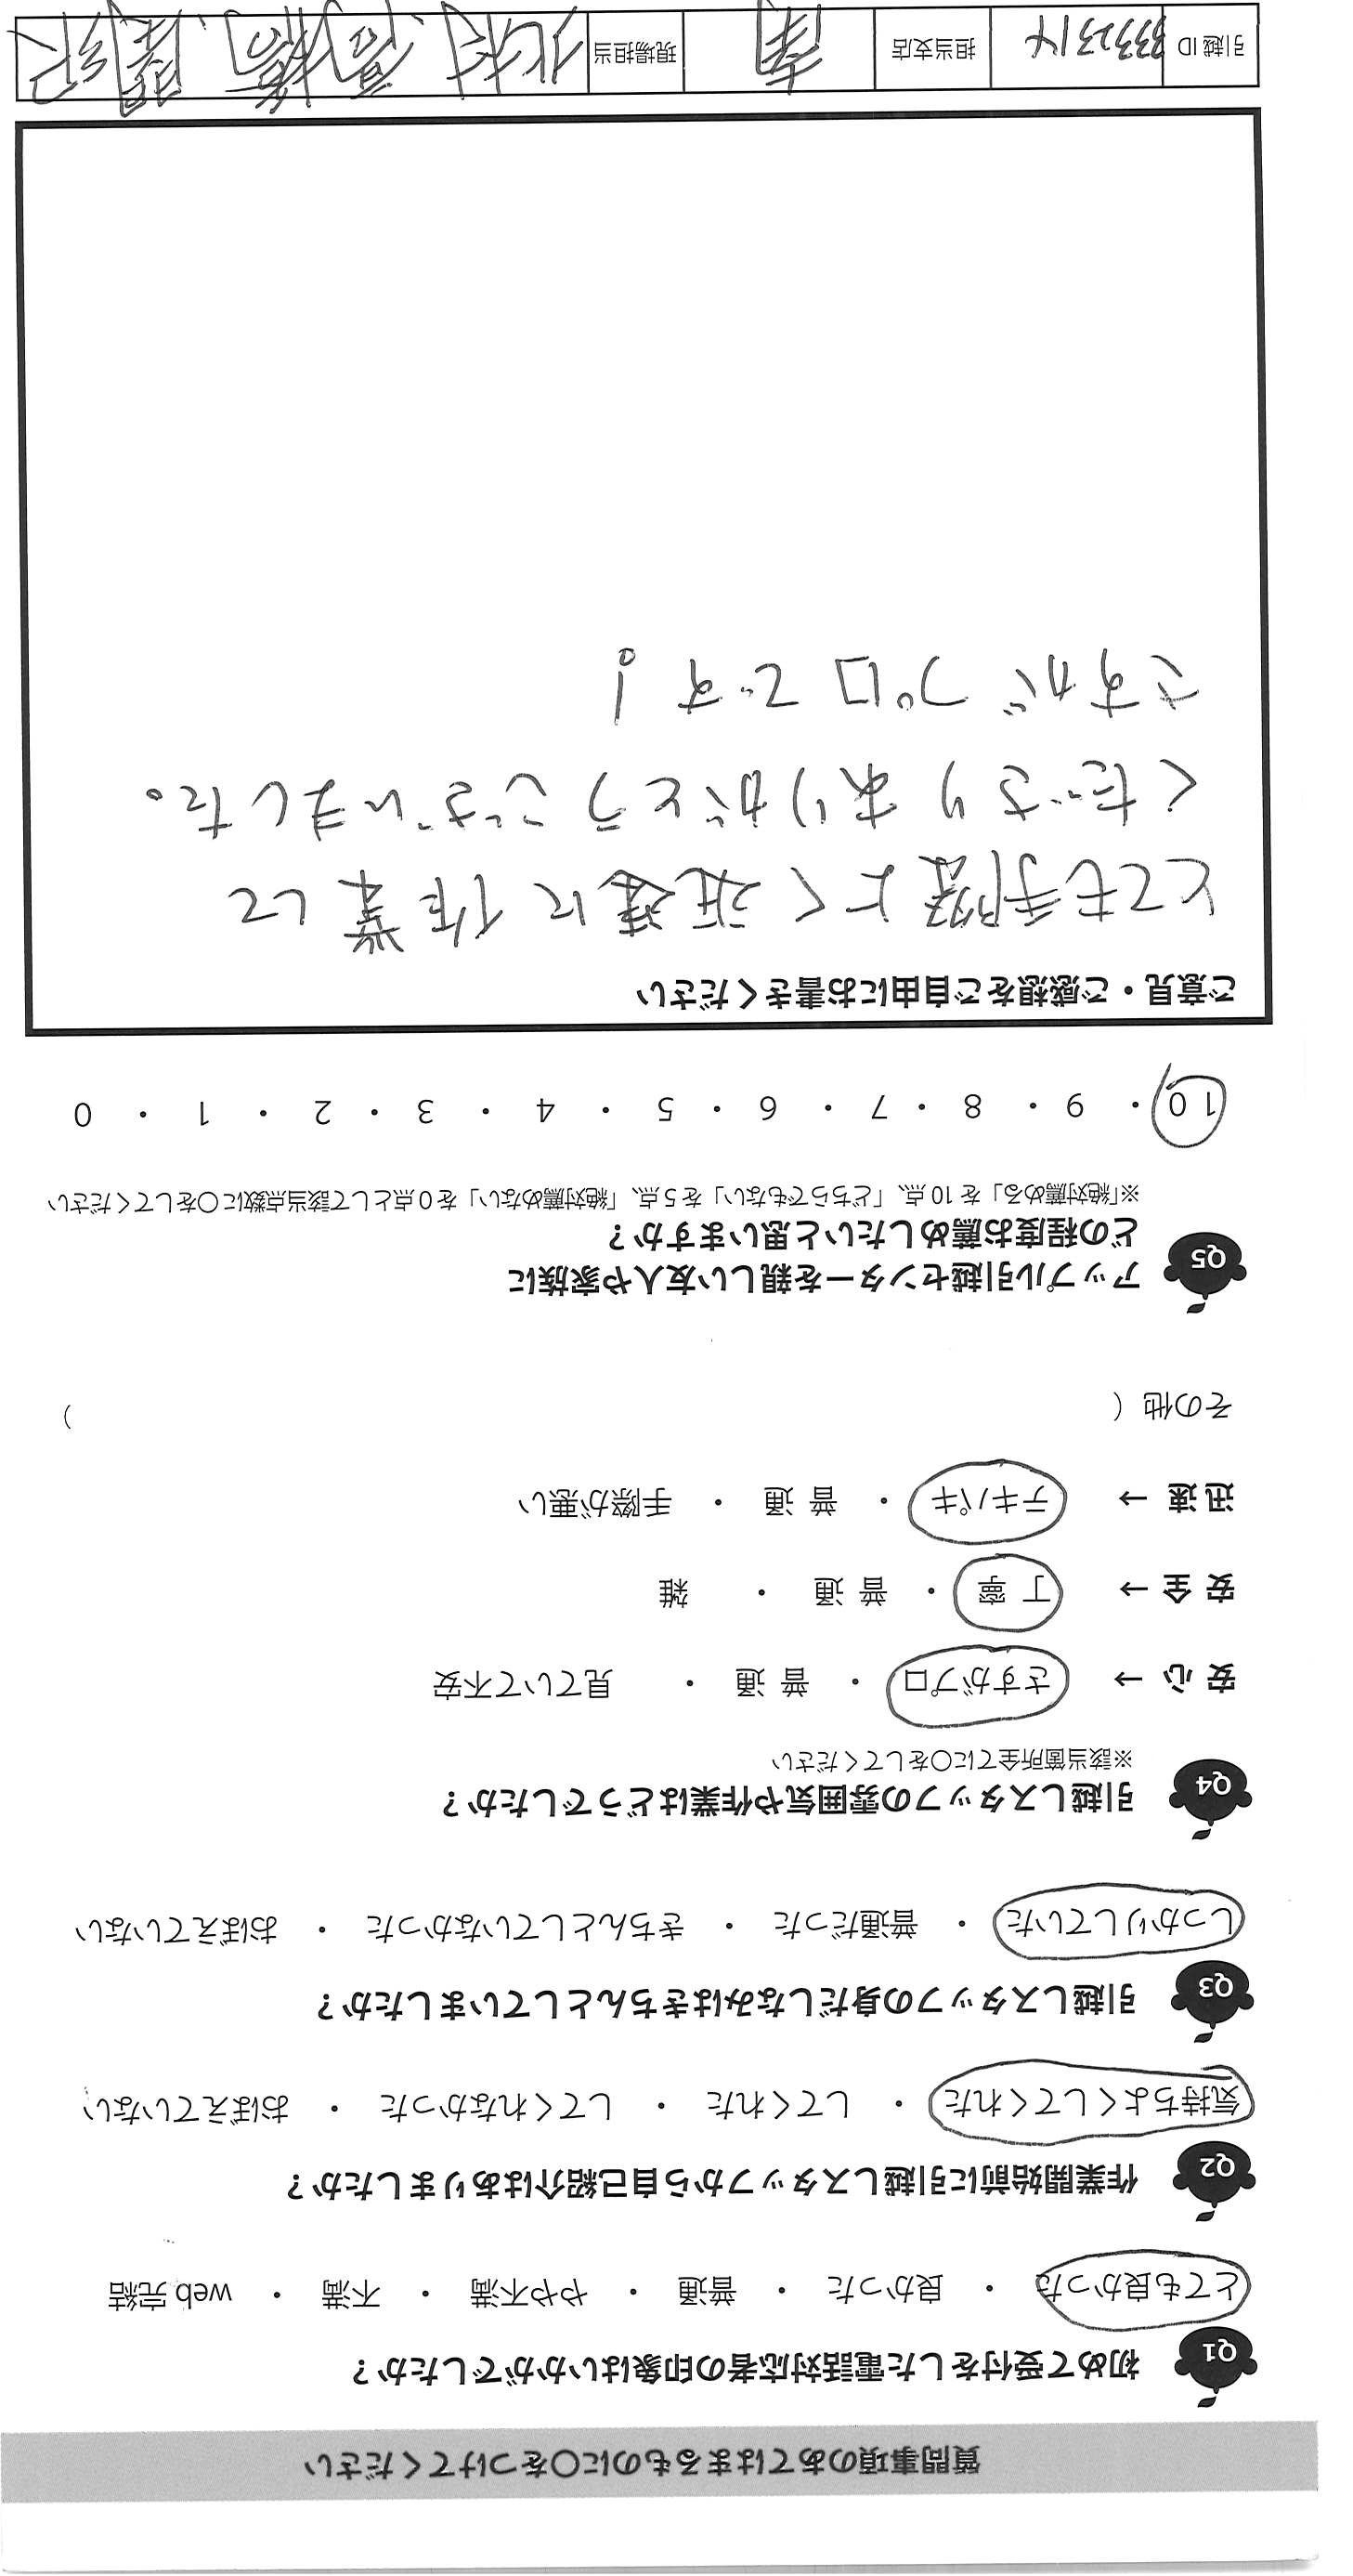 質問事項のあてはまるものに○をつけてください
Q1 初めて受付をした電話対応者の印象はいかがでしたか？
とても良かった ・ 良かった ・ 普通 ・ やや不満 ・ 不満 ・ web 完結
Q2 作業開始前に引越しスタッフから自己紹介はありましたか？
気持ちよくしてくれた ・ してくれた ・ してくれなかった ・ おぼえていない
Q3 引越しスタッフの身だしなみはきちんとしていましたか？
しっかりしていた ・ 普通だった ・ きちんとしていなかった ・ おぼえていない
Q4 引越しスタッフの雰囲気や作業はどうでしたか？
※該当箇所全てに○をしてください
安 心 → さすがプロ ・ 普 通 ・ 見ていて不安
安 全 → 丁 寧 ・ 普 通 ・ 雑
迅 速 → テキパキ ・ 普 通 ・ 手際が悪い
その他（ ）
Q5 アップル引越センターを親しい友人や家族に
どの程度お薦めしたいと思いますか？
※「絶対薦める」を 10 点、「どちらでもない」を 5 点、「絶対薦めない」を 0 点として該当点数に○をしてください
10 ・ 9 ・ 8 ・ 7 ・ 6 ・ 5 ・ 4 ・ 3 ・ 2 ・ 1 ・ 0
ご意見・ご感想をご自由にお書きください
とても手際よく迅速に作業して
くださりありがとうございました。
さすがプロです！
引越 ID 3332314 担当支店 南 現場担当 北村 高橋